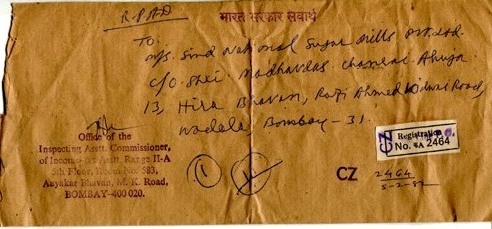 R.P.A.D
भारत सरकार सेवार्थ
To.
M/s. Sind National Sugar Mills Pvt. Ltd.
C/o. Shri. Madhavdas Chanrai Ahuja
13, Hira Bhavan, Rafi Ahmed Kidwai Road,
Wadala, Bombay - 31.
Office of the
Inspecting Asstt. Commissioner,
of Income-tax Asstt. Range II-A
5th Floor, Room No. 583,
Aayakar Bhavan, M. K. Road,
BOMBAY-400 020.
1
Registration
No. 2464
CZ
2464
5-2-82